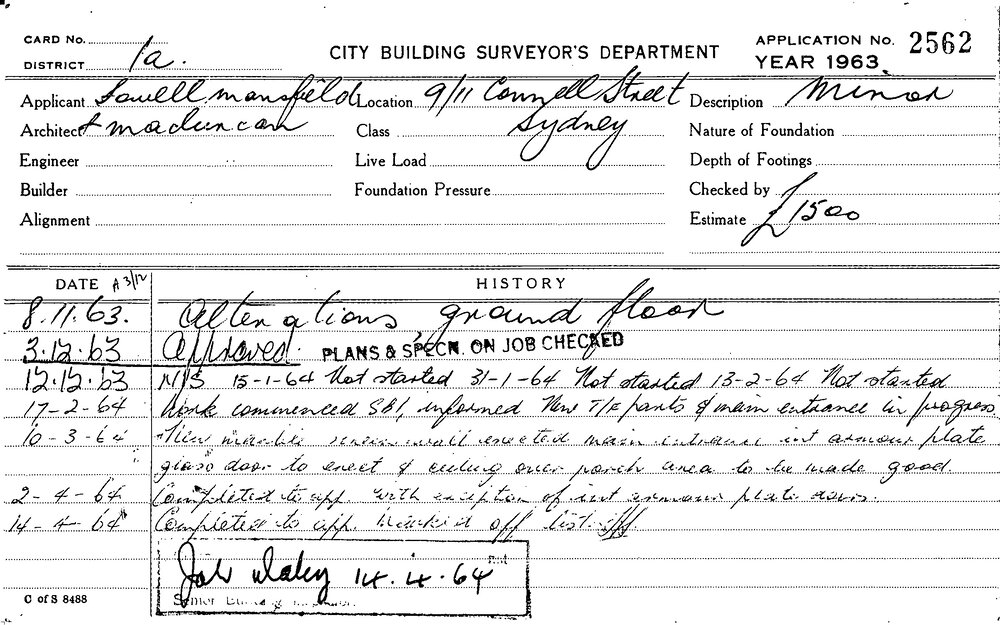 CARD No.
DISTRICT 1a.
CITY BUILDING SURVEYOR'S DEPARTMENT
APPLICATION No. 2562
YEAR 1963
Applicant Fowell mansfield Location 9/11 Connell Street Description Minor
Architect & maclurcan Class Sydney Nature of Foundation
Engineer Live Load Depth of Footings
Builder Foundation Pressure Checked by
Alignment Estimate £1500
DATE A 3/12 HISTORY
8.11.63. Alterations ground floor
3.12.63 Approved. PLANS & SPECN. ON JOB CHECKED
12.12.63 N/S 15-1-64 Not started 31-1-64 Not started 13-2-64 Not started
17-2-64 Work commenced SBI, informed New T/F parts & main entrance in progress
10-3-64 New marble screen wall erected main entrance int armour plate
glass door to erect & ceiling over porch area to be made good.
2-4-64 Completed to app. with exception of int armour plate doors.
14-4-64 Completed to app. Marked off list
Job 14.4.64
Senior Building
C of S 8488